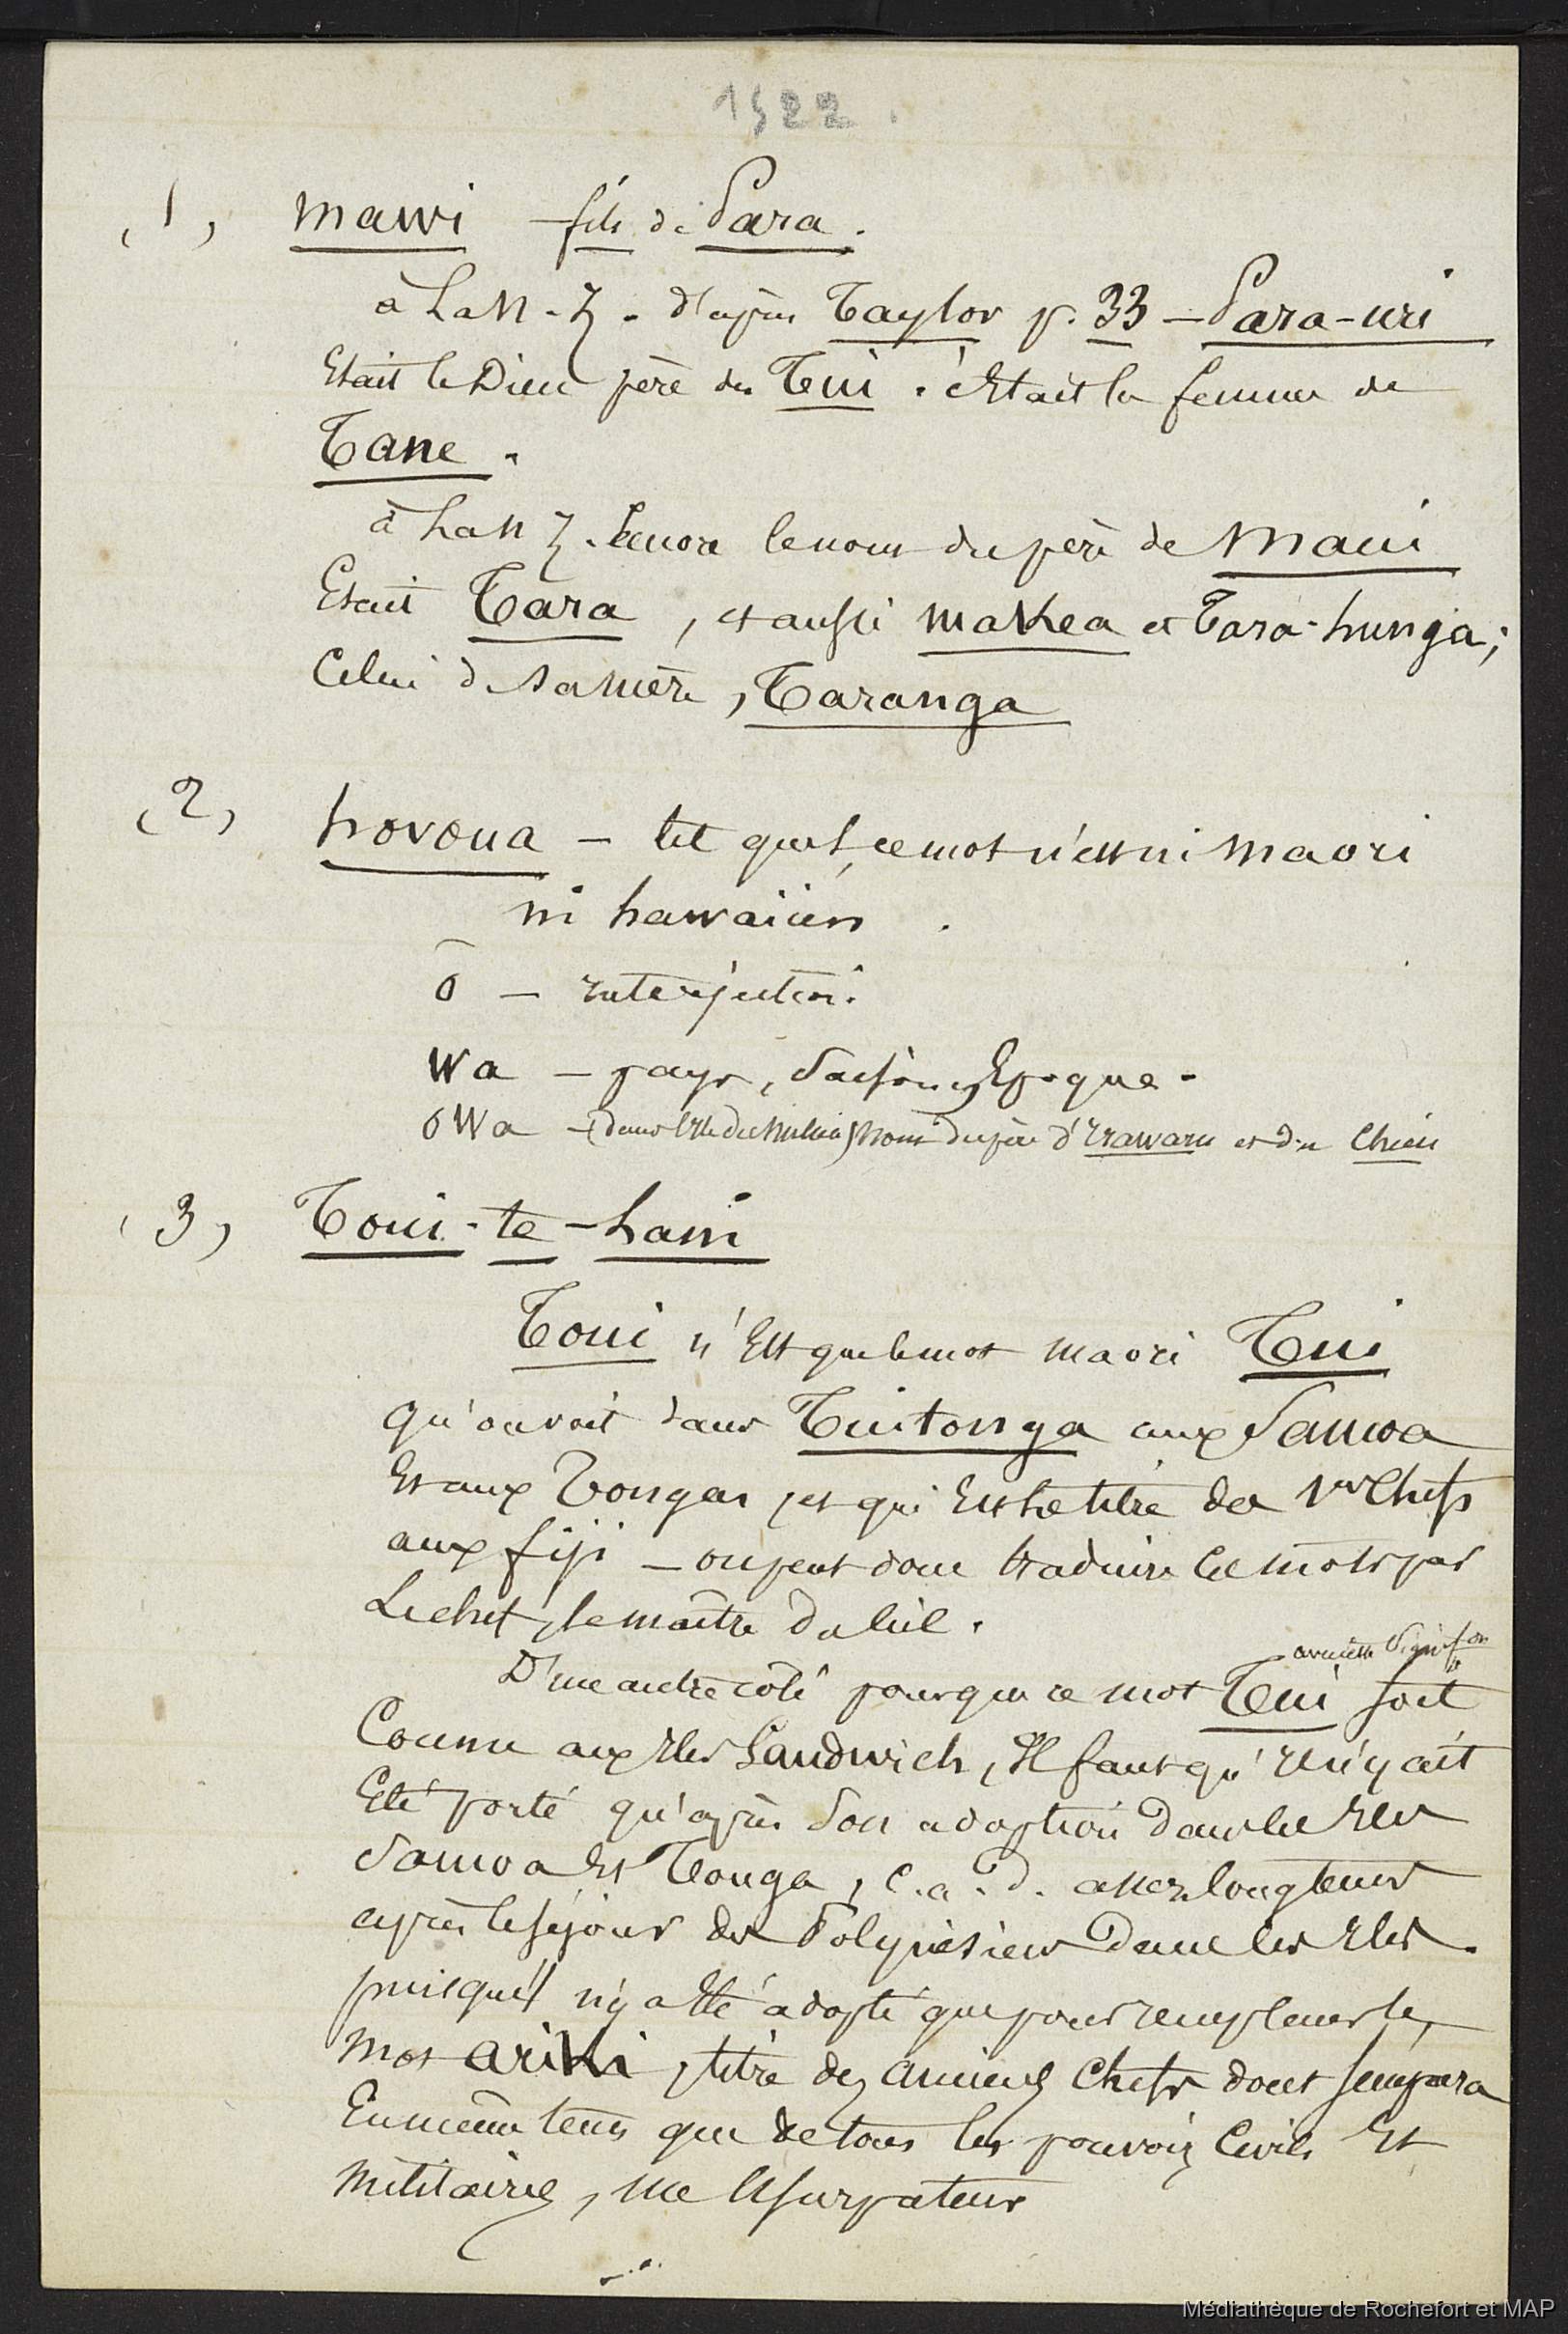 1522.
(1) mawi – fils de Para.
à La N. Z. d'après Taylor p. 33 – Para-uri
Etait le Dieu père des Tui. C'était la femme de
Tane.
à La N Z. Encore le nom du père de Maui
Etait Tara, et aussi makea et Tara-hunga;
Celui de sa mère, Taranga
(2) hovoua – tel quel, ce mot n'est ni maori
ni hawaiien.
ō – interjection.
Wa – pays, Saison, Epoque.
ō Wa – (dans l'île du Milieu) nom du père d'Irawaru et du Chien
(3) Toui-te-Lani
Toui n'Est que le mot maori Tui
qu'on voit dans Tuitonga aux Samoa
Et aux Tongas, et qui Est le titre des 1ers Chefs
aux fiji – on peut donc traduire ces mots par
Le chef, le maître du Ciel.
avec cette Signifon
D'une autre côté pour que ce mot Tui soit
Connu aux Iles Sandwich, Il faut qu'Il n'y ait
Eté porté qu'après Son adoption dans les Iles
Samoa Et Tonga, c.a.d. assez longtems
après le séjour des Polynésiens dans les Iles.
puisqu'il n'y a Eté adopté que pour remplacer le
Mot ariki, titre des anciens Chefs dont s'empara
En même tems que de tous les pouvoirs Civils Et
Militaires, un Usurpateur
Médiathèque de Rochefort et MAP